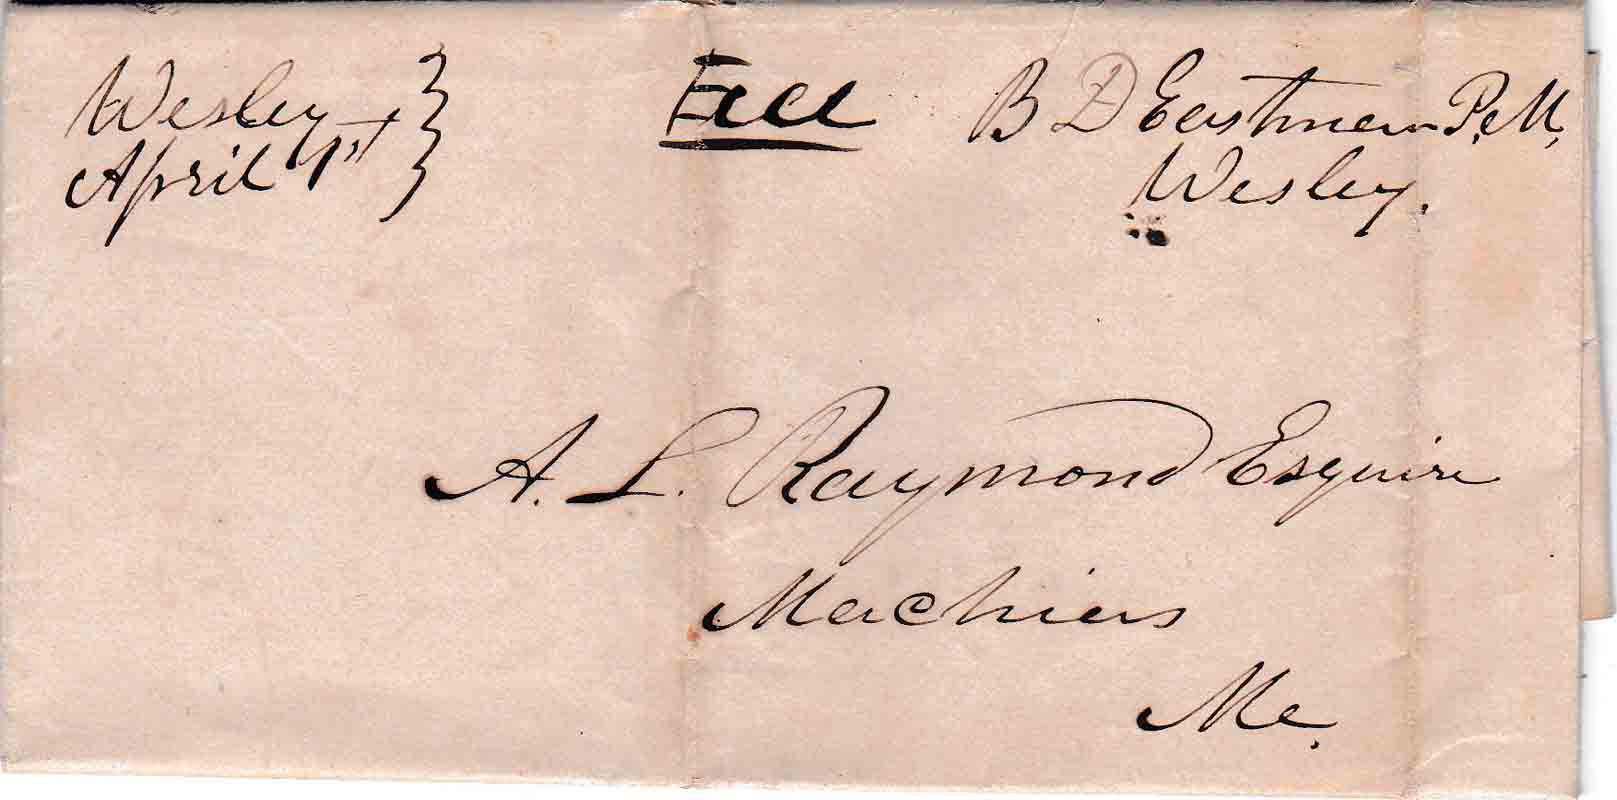 Wesley
April 1st
Free
B D Eastman P.M.
Wesley.
A. L. Raymond Esquire
Machias
Me.